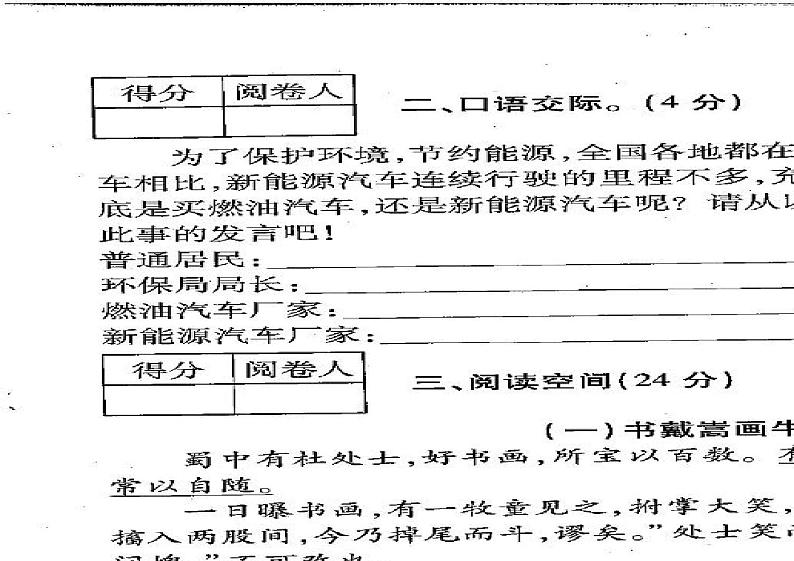 得分 阅卷人
二、口语交际。(4 分)
为了保护环境,节约能源,全国各地都在
车相比,新能源汽车连续行驶的里程不多,充
底是买燃油汽车,还是新能源汽车呢? 请从以
此事的发言吧!
普通居民:
环保局局长:
燃油汽车厂家:
新能源汽车厂家:
得分 阅卷人
三、阅读空间(24 分)
(一)书戴嵩画牛
蜀中有杜处士,好书画,所宝以百数。
常以自随。
一日曝书画,有一牧童见之,拊掌大笑,
搐入两股间,今乃掉尾而斗,谬矣。”处士笑